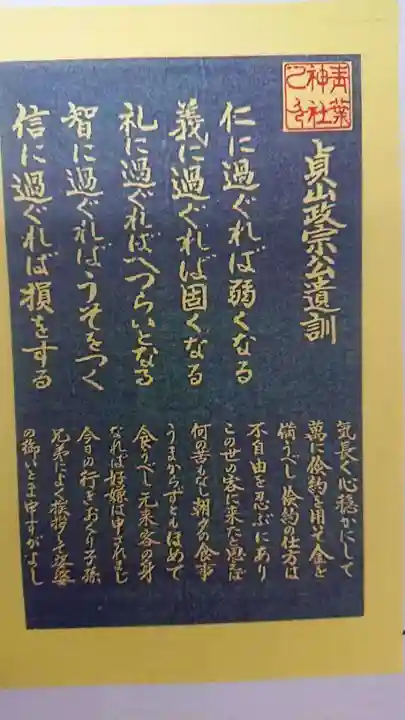 青葉
神社
貞山政宗公遺訓
仁に過ぐれば弱くなる
義に過ぐれば固くなる
礼に過ぐればへつらいとなる
智に過ぐればうそをつく
信に過ぐれば損をする
気長く心穏かにして
萬に倹約を用て金を
備うべし 倹約の仕方は
不自由を忍ぶにあり
この世の客に来たと思へば
何の苦もなし 朝夕の食事
うまからずともほめて
食うべし 元来客の身
なれば好嫌は申されまじ
今日の行をおくり 子孫
兄弟によく挨拶して 娑婆
の御いとま申すがよし